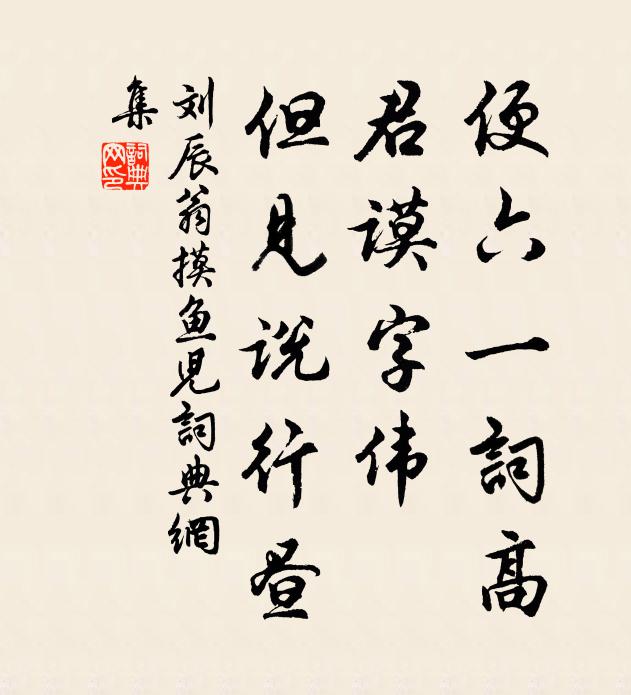 便六一詞高
君谟字伟
但见说行昼
刘辰翁摸鱼児詞典網
集
詞典网印